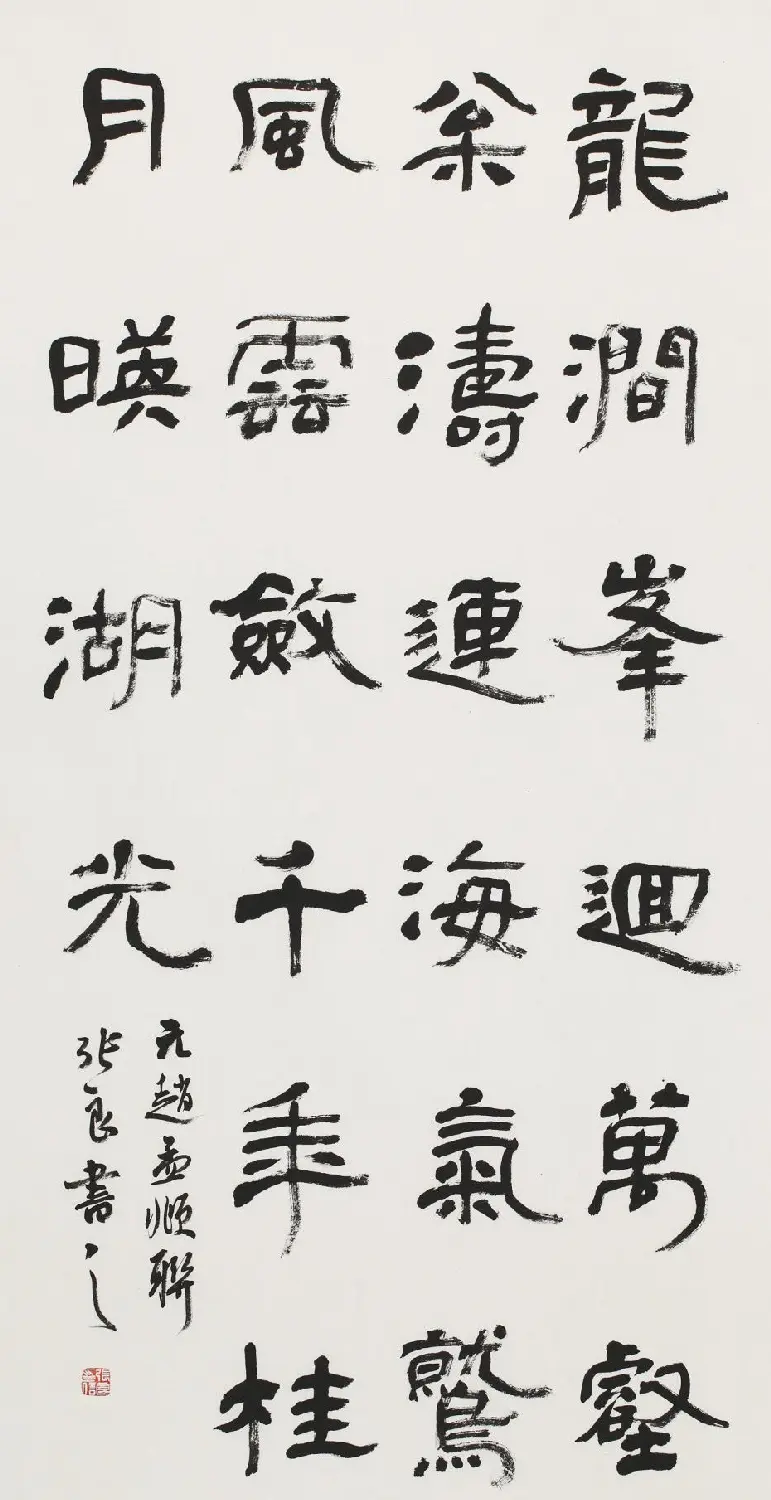 龍澗峯迴萬壑
枀濤連海氣鷲
風雲斂千年桂
月暎湖光
元趙孟頫聯
張良書之